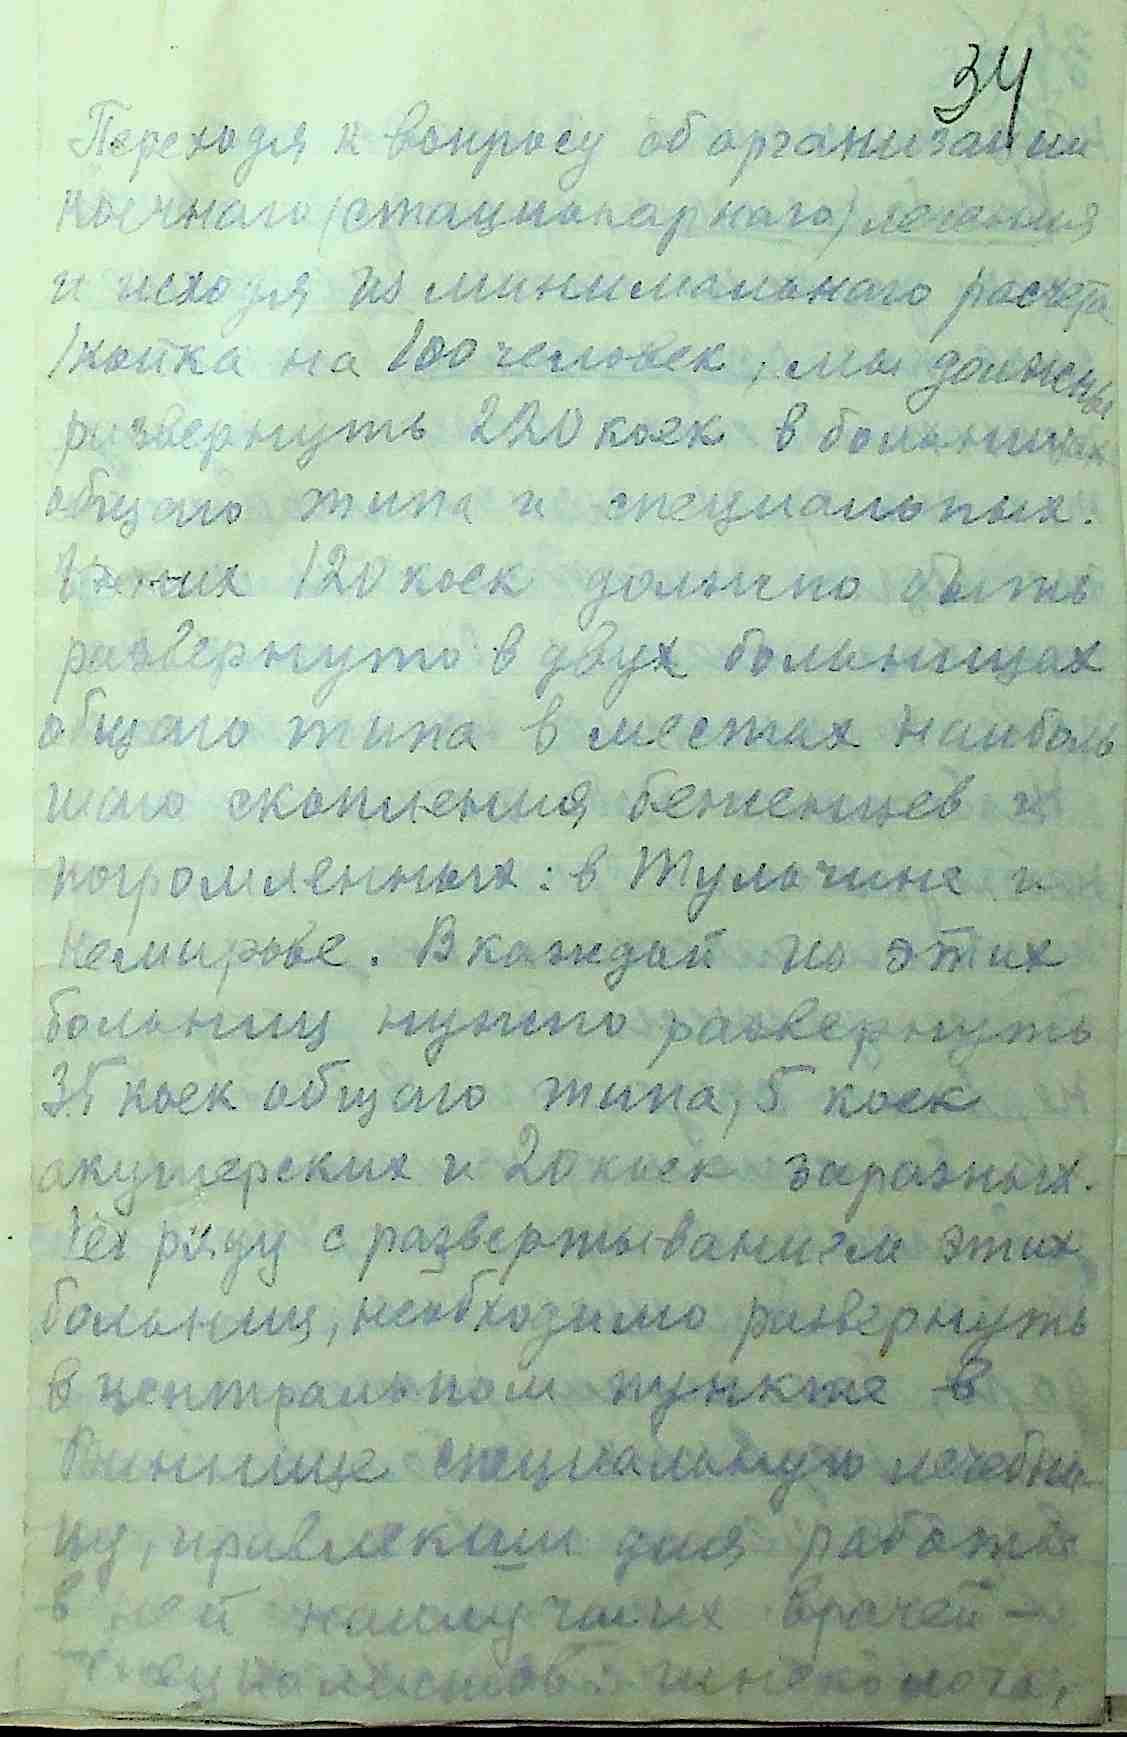 34
Переходя к вопросу об организации
коечнаго (стационарнаго) лечения
и исходя из минимальнаго расчета
1 койка на 100 человек, мы должны
развернуть 220 коек в больницах
общаго типа и специальных.
Из них 120 коек должно быть
развернуто в двух больницах
общаго типа в местах наиболь
шаго скопления беженцев и
погромленных: в Тульчине и
Немирове. В каждой из этих
больниц нужно развернуть
35 коек общаго типа, 5 коек
акушерских и 20 коек заразных.
На ряду с развертыванием этих
больниц, необходимо развернуть
в центральном пункте в
Виннице специальную лечебни-
цу, привлекши для работы
в ней наилучших врачей -
специалистов: гинеколога,